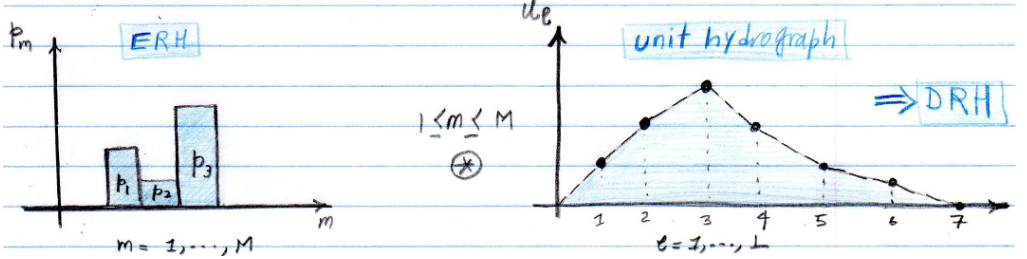 p_m ERH
p_1 p_2 p_3
m
m = 1, ..., M
1 ≤ m ≤ M
⊛
U_ℓ
unit hydrograph
1 2 3 4 5 6 7
ℓ = 1, ..., L
⇒ DRH